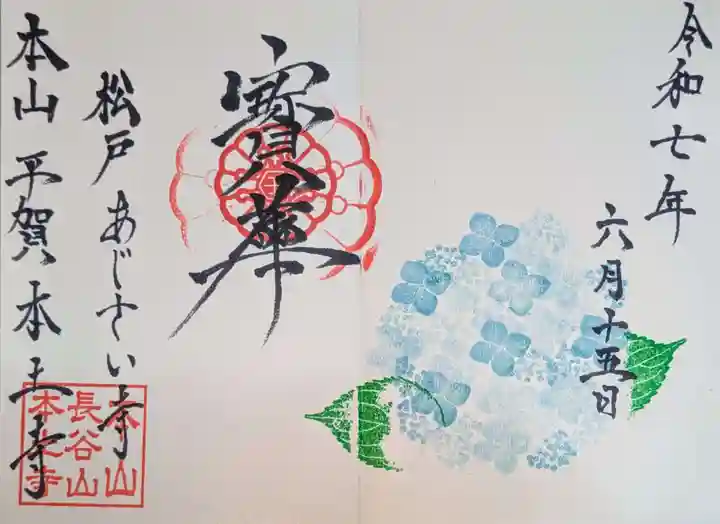 令和七年
六月十五日
寳華
松戸あじさい寺
本山平賀本土寺
本山
長谷山
本土寺